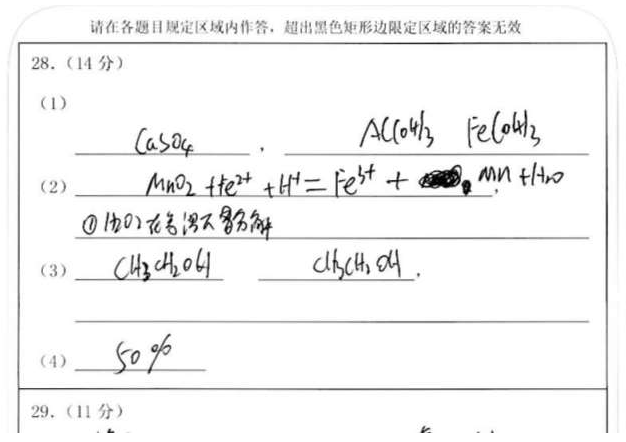 请在各题目规定区域内作答，超出黑色矩形边限定区域的答案无效
28.（14 分）
（1）
CaSO4 . Al(OH)3 Fe(OH)3
（2） MnO2 +Fe2+ +H+ = Fe3+ + Mn +H2O
①H2O2在高温下易分解
（3） CH3CH2OH CH3CH2OH .
（4） 50%
29.（11 分）